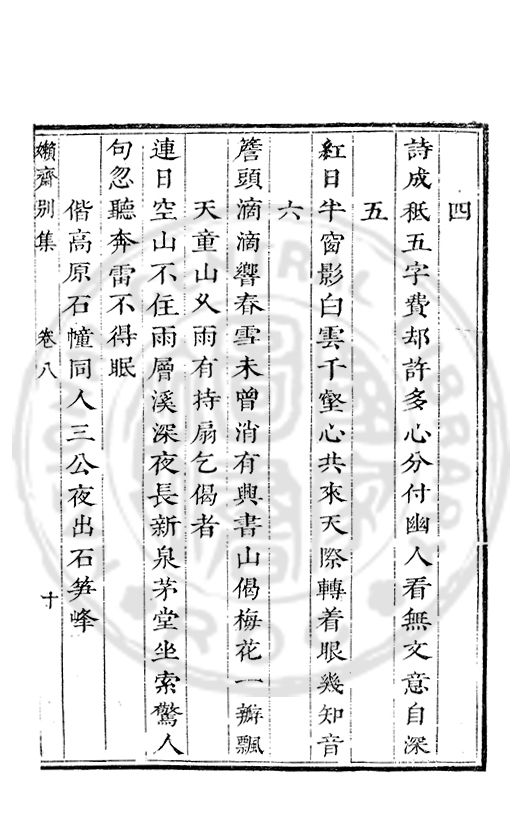 四
詩成秪五字費却許多心分付幽人看無文意自深
五
紅日半窗影白雲千壑心共來天際轉着眼幾知音
六
簷頭滴滴響春雪未曾消有興書山偈梅花一瓣飄
天童山久雨有持扇乞偈者
連日空山不住雨層溪深夜長新泉茅堂坐索驚人
句忽聽奔雷不得眠
偕高原石幢同人三公夜出石笋峰
嬾齋別集 卷八 十